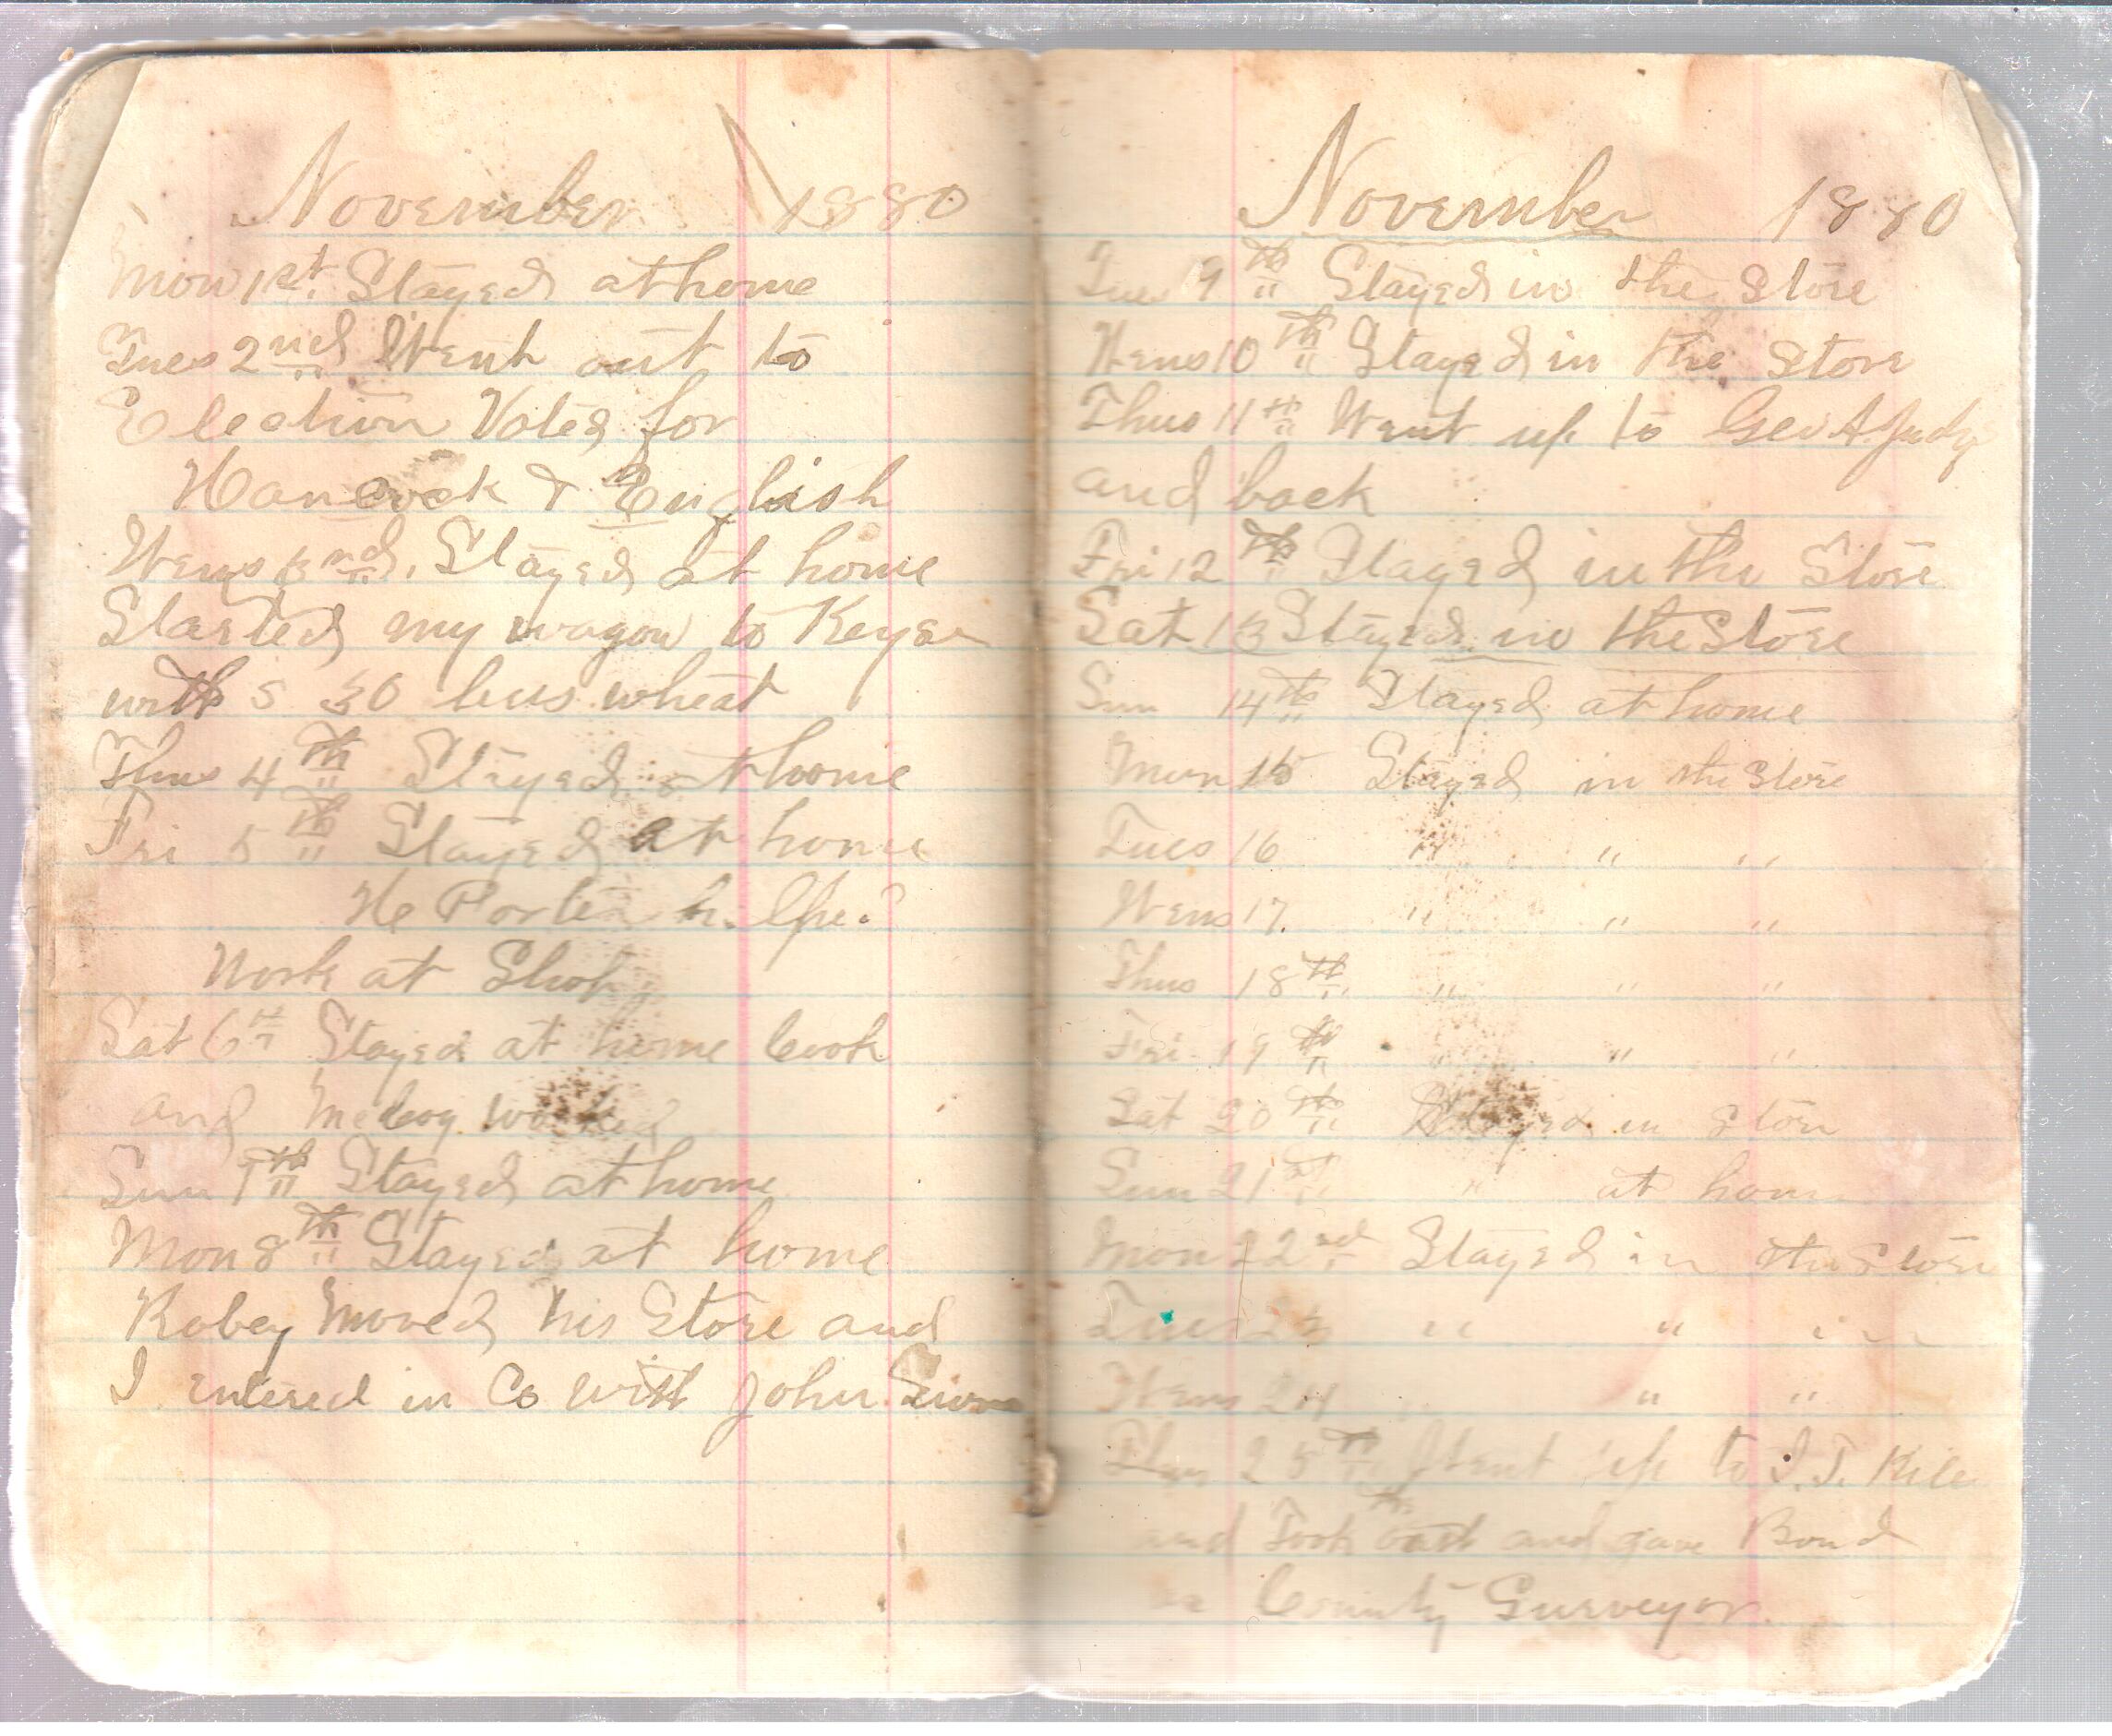 November 1880
Mon 1st. Stayed at home
Tues 2nd Went out to
Election Voted for
Hancock & English
Wens 3nd. Stayed at home
Started my wagon to Keyser
with 5 30 bus wheat
Thus 4th Stayed at home
Fri 5th Stayed at home
Porter
Work at Shop
Sat 6th Stayed at home Cook
and worked
Sun 7th Stayed at home
Mon 8th Stayed at home
Robey Moved his Store and
I entered in Co with John
November 1880
Tues 9th Stayed in the Store
Wens 10th Stayed in the Store
Thus 11th Went up to Geo A. Judy
and back
Fri 12th Stayed in the Store
Sat 13 Stayed in the Store
Sun 14th Stayed at home
Mon 15 Stayed in the Store
Tues 16 " " "
Wens 17. " " "
Thus 18th " " "
Fri 19th " " "
Sat 20th Stayed in Store
Sun 21st " at home
Mon 22nd Stayed in the Store
Tues 23 " " in
Wens 24 " "
Thus 25th Went up to I. T. Kile
and Took oath and gave Bond
as County Surveyor.